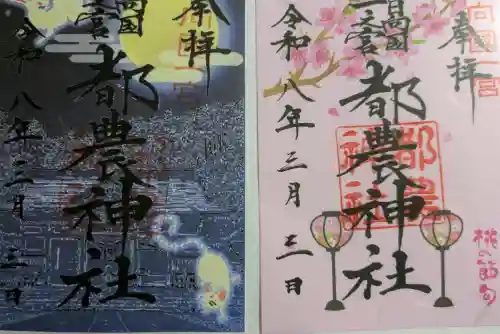 奉拝
日向国一宮
都農神社
令和八年三月三日
奉拝
日向国一宮
日向国
一之宮
都農神社
都農神社
令和八年三月三日
桃の節句